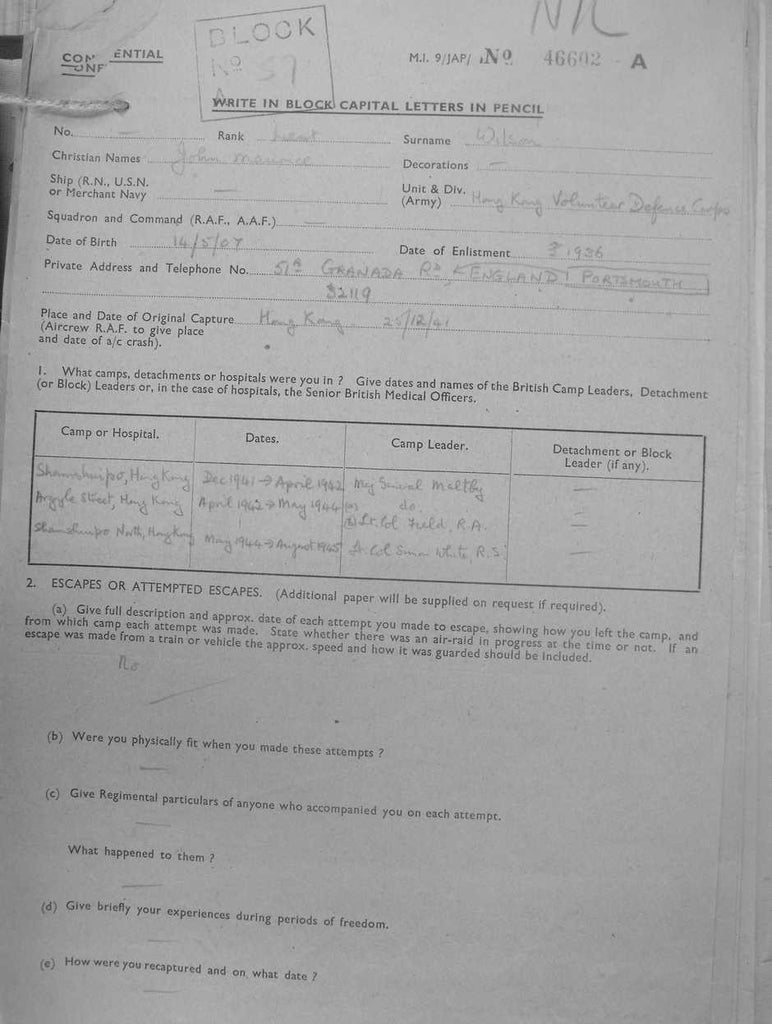 BLOCK
No 57
NIL
CONFIDENTIAL
M.I. 9/JAP/ No 46602 - A
WRITE IN BLOCK CAPITAL LETTERS IN PENCIL
No. — Rank Lieut Surname Wilson
Christian Names John Maurice Decorations —
Ship (R.N., U.S.N. or Merchant Navy — Unit & Div. (Army) Hong Kong Volunteer Defence Corps
Squadron and Command (R.A.F., A.A.F.) —
Date of Birth 14/5/07 Date of Enlistment ? 1936
Private Address and Telephone No. 51a GRANADA RD, ENGLAND PORTSMOUTH
32119
Place and Date of Original Capture Hong Kong 25/12/41
(Aircrew R.A.F. to give place
and date of a/c crash).
1. What camps, detachments or hospitals were you in ? Give dates and names of the British Camp Leaders, Detachment
(or Block) Leaders or, in the case of hospitals, the Senior British Medical Officers.
Camp or Hospital. Dates. Camp Leader. Detachment or Block Leader (if any).
Shamshuipo, Hong Kong Dec 1941 → April 1942 Maj General Maltby —
Argyle Street, Hong Kong April 1942 → May 1944 (a) do —
(b) Lt. Col Field, R.A. —
Shamshuipo North, Hong Kong May 1944 → August 1945 Lt. Col Simon White, R.S. —
2. ESCAPES OR ATTEMPTED ESCAPES. (Additional paper will be supplied on request if required).
(a) Give full description and approx. date of each attempt you made to escape, showing how you left the camp, and
from which camp each attempt was made. State whether there was an air-raid in progress at the time or not. If an
escape was made from a train or vehicle the approx. speed and how it was guarded should be included.
No
(b) Were you physically fit when you made these attempts ?
—
(c) Give Regimental particulars of anyone who accompanied you on each attempt.
—
What happened to them ?
—
(d) Give briefly your experiences during periods of freedom.
—
(e) How were you recaptured and on what date ?
—